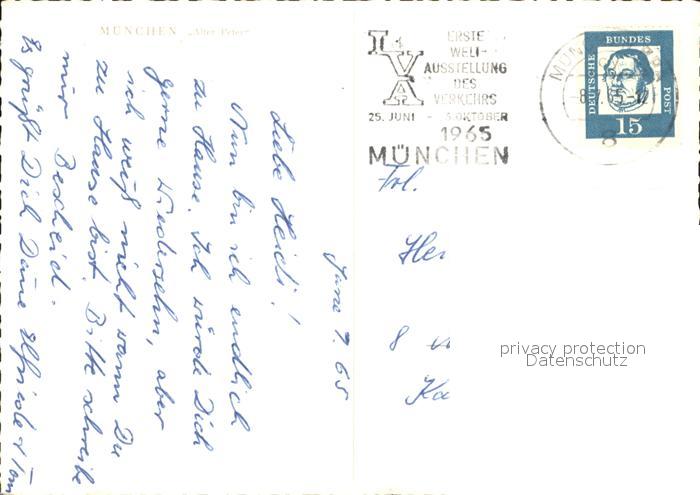 MÜNCHEN „Alter Peter"
June 7. 65
Liebe Heidi!
Nun bin ich endlich
zu Hause. Ich würde Dich
gerne wiedersehn, aber
ich weiß nicht wann Du
zu Hause bist. Bitte schreibe
mir Bescheid.
Es grüßt Dich Deine Elfriede + Tom
IVA
ERSTE
WELT-
AUSSTELLUNG
DES
VERKEHRS
25. JUNI - 3. OKTOBER
1965
MÜNCHEN
MÜN
65-
8
DEUTSCHE BUNDES POST
15
Frl.
Her
8
Ka
privacy protection
Datenschutz